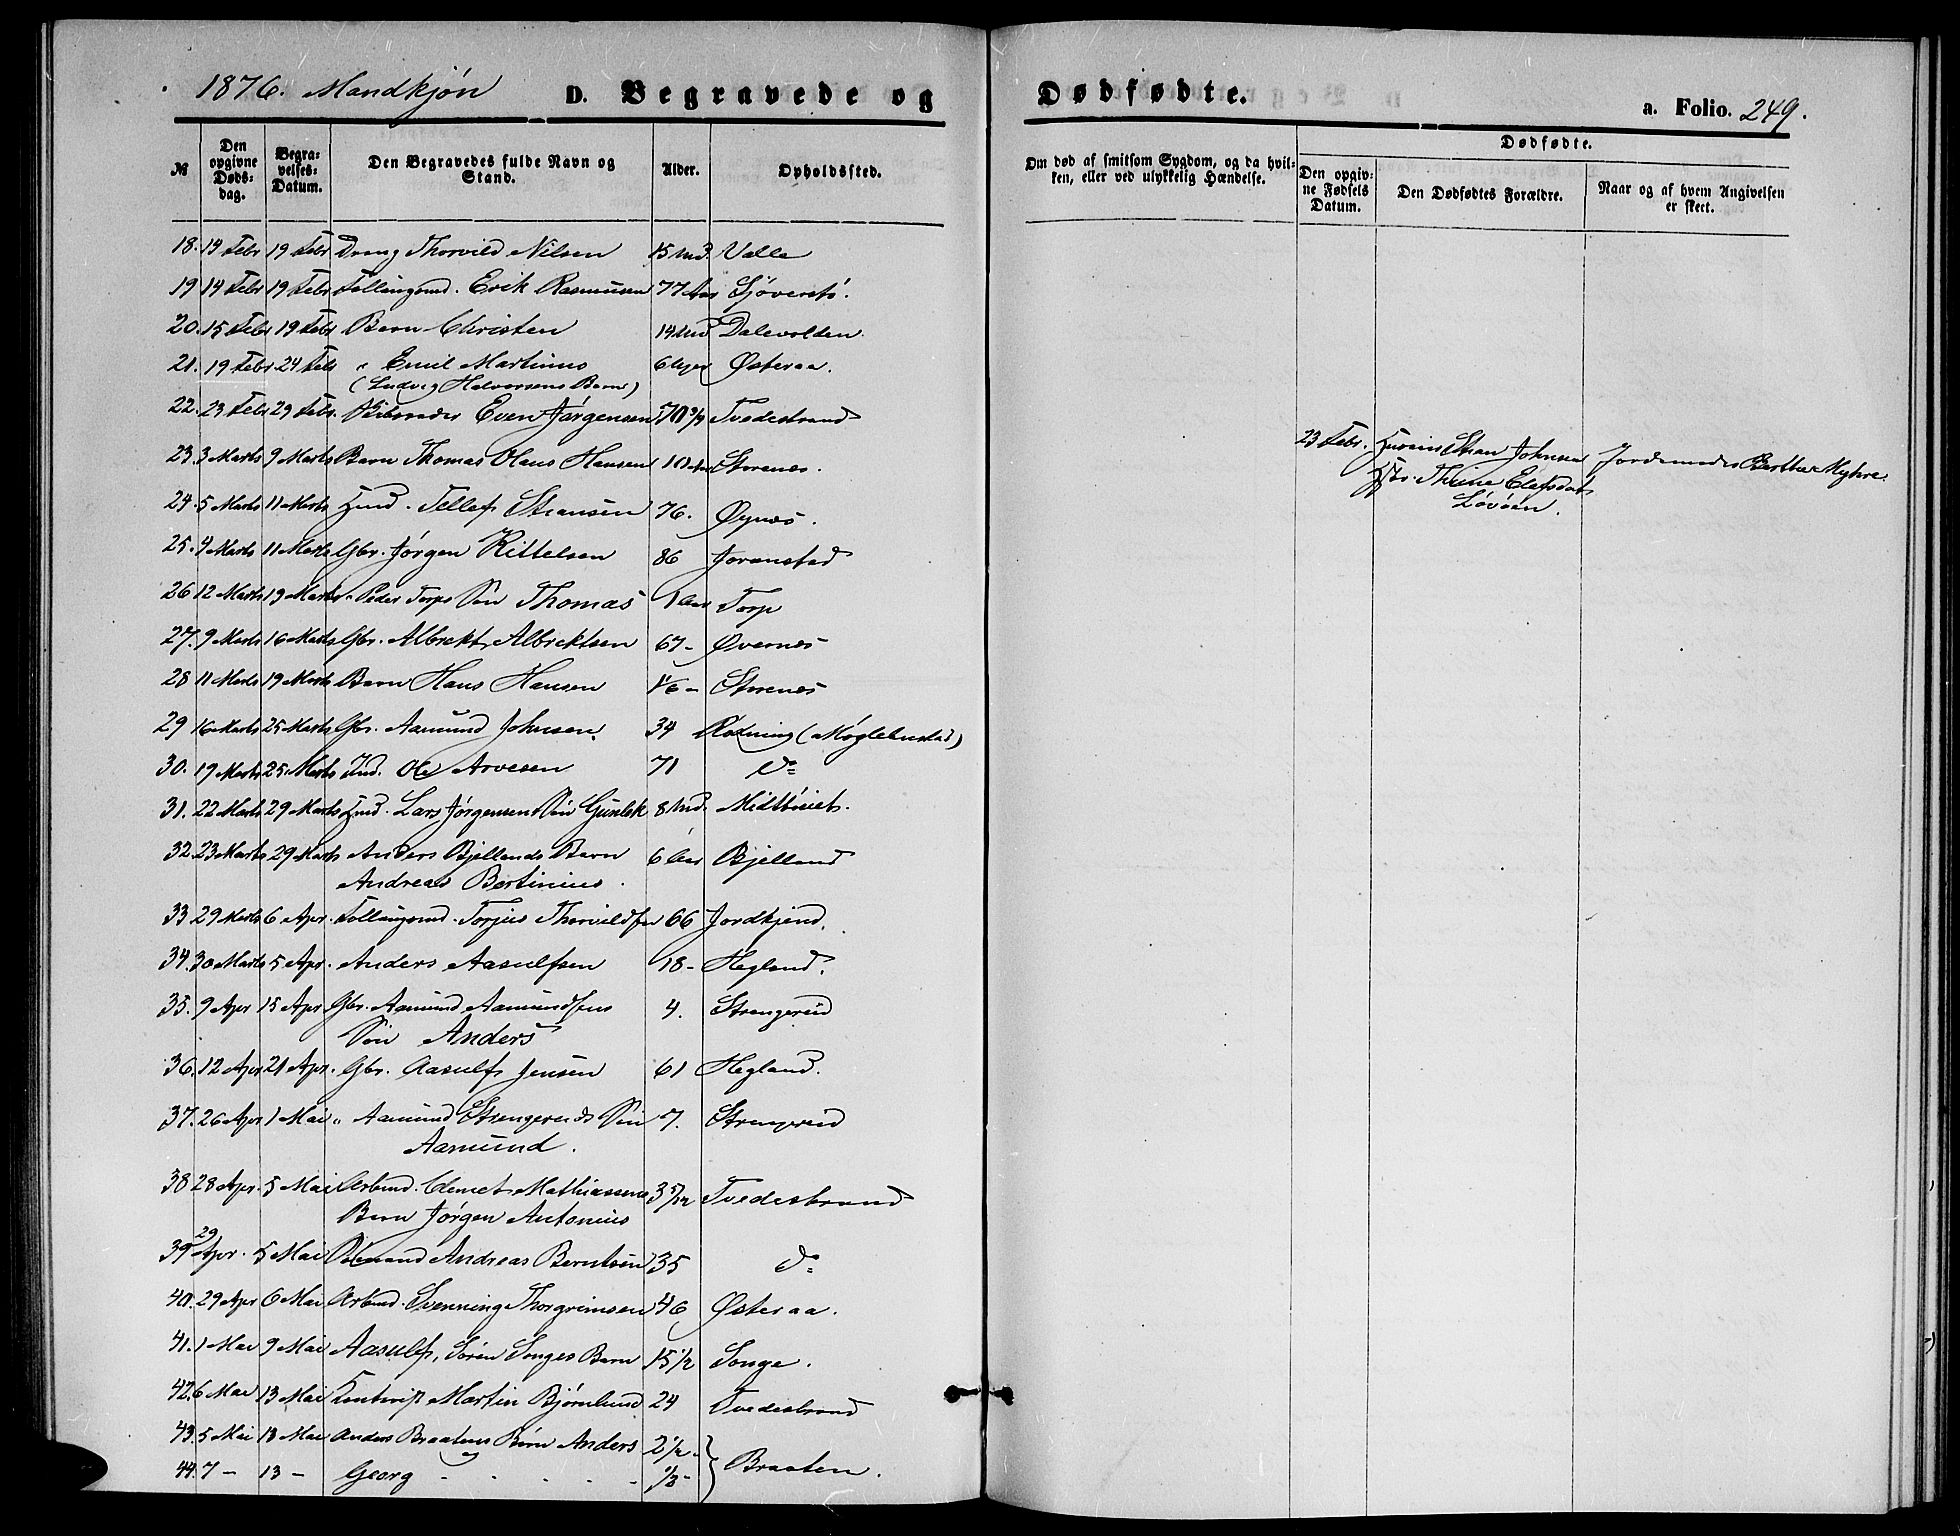 1876. Mandkjøn D. Begravede og Dødfødte. a. Folio. 249.
№ Den opgivne Døds-dag. Begra-velses-Datum. Den Begravedes fulde Navn og Stand. Alder. Opholdssted.
Om død af smitsom Sygdom, og da hvil-ken, eller ved ulykkelig Hændelse. Dødfødte. Den opgiv-ne Fødsels Datum. Den Dødfødtes Forældre. Naar og af hvem Angivelsen er skeet.
18. 14 Febr 19 Febr Dreng Thorvild Nilsen 15 Md. Valle
19 14 Febr 19 Febr Føllaugsmd. Erik Rasmussen 77 Aar
20. 15 Febr 19 Febr Barn Christen 14 Md Dalevolden.
21. 19 Febr 24 Feb " Emil Martinus 6 Uger Østeraa.
(Ludvig Halvorsens Barn)
22. 23 Febr 29 Febr. Even Jørgensen Tvedestrand
23. 3 Marts 9 Marts Barn Thomas Olaus Hansen Storenes.
24. 5 Marts 11 Marts Hmd. Tellef 76. Øynes.
25. 4 Marts 11 Marts Gbr. Jørgen Kittelsen 86 Joranstad
26 12 Marts 19 Marts " Peder Torps Søn Thomas 1 Aar Torp
27. 9 Marts 16 Marts Gbr. Albrekt Albrektsen 67 - Øvernes
28 11 Marts 19 Marts Barn Hans Hansen Storenes
29 16 Marts 25 Marts Gbr. Aamund Johnsen. 34
30. 19 Marts 25 Marts Ind. Ole Arvesen 71 do
31. 22 Marts 29 Marts Hmd. Lars Jørgensens Søn Gunlek 8 Md.
32. 23 Marts 29 Marts Anders Bjellands Barn 6 Aar Bjelland
Andreas Bertinius.
33 29 Marts 6 Apr. Føllaugsmd. Torjus Thorvildsen 66 Jordkjend.
34. 30 Marts 5 Apr. Anders Aasulfsen 18 - Hegland.
35. 9 Apr 15 Apr Gbr. Aamund Aamundsens 4. Strengereid
Søn Anders
36. 12 Apr 21 Apr. Gbr. Aasulf Jensen 61 Hegland.
37. 26 Apr 1 Mai " Aamund Strengereids Søn 7. Strengereid
Aamund.
38 28 Apr. 5 Mai Arbmd. Clemet Mathiassens 3 5/12 Tvedestrand
Barn Jørgen Antonius
39 29 Apr. 5 Mai Andreas Berntsen 35 do
40. 29 Apr 6 Mai Arbmd. Svenning Thorgrimsen 46 Østeraa.
41. 1 Mai 9 Mai Aasulf, Søren Songes Barn 15 1/2 Songe.
42. 6 Mai 13 Mai Martin Bjørnlund 24 Tvedestrand
43. 5 Mai 13 Mai Anders Braatens Børn Anders 2 1/2 - Braaten.
44. 7 - 13 - og Georg - - - - - 1/2 -
23 Febr. Johnsen Jordemoder Berthe Myhre.
Hstr. Elefsdat